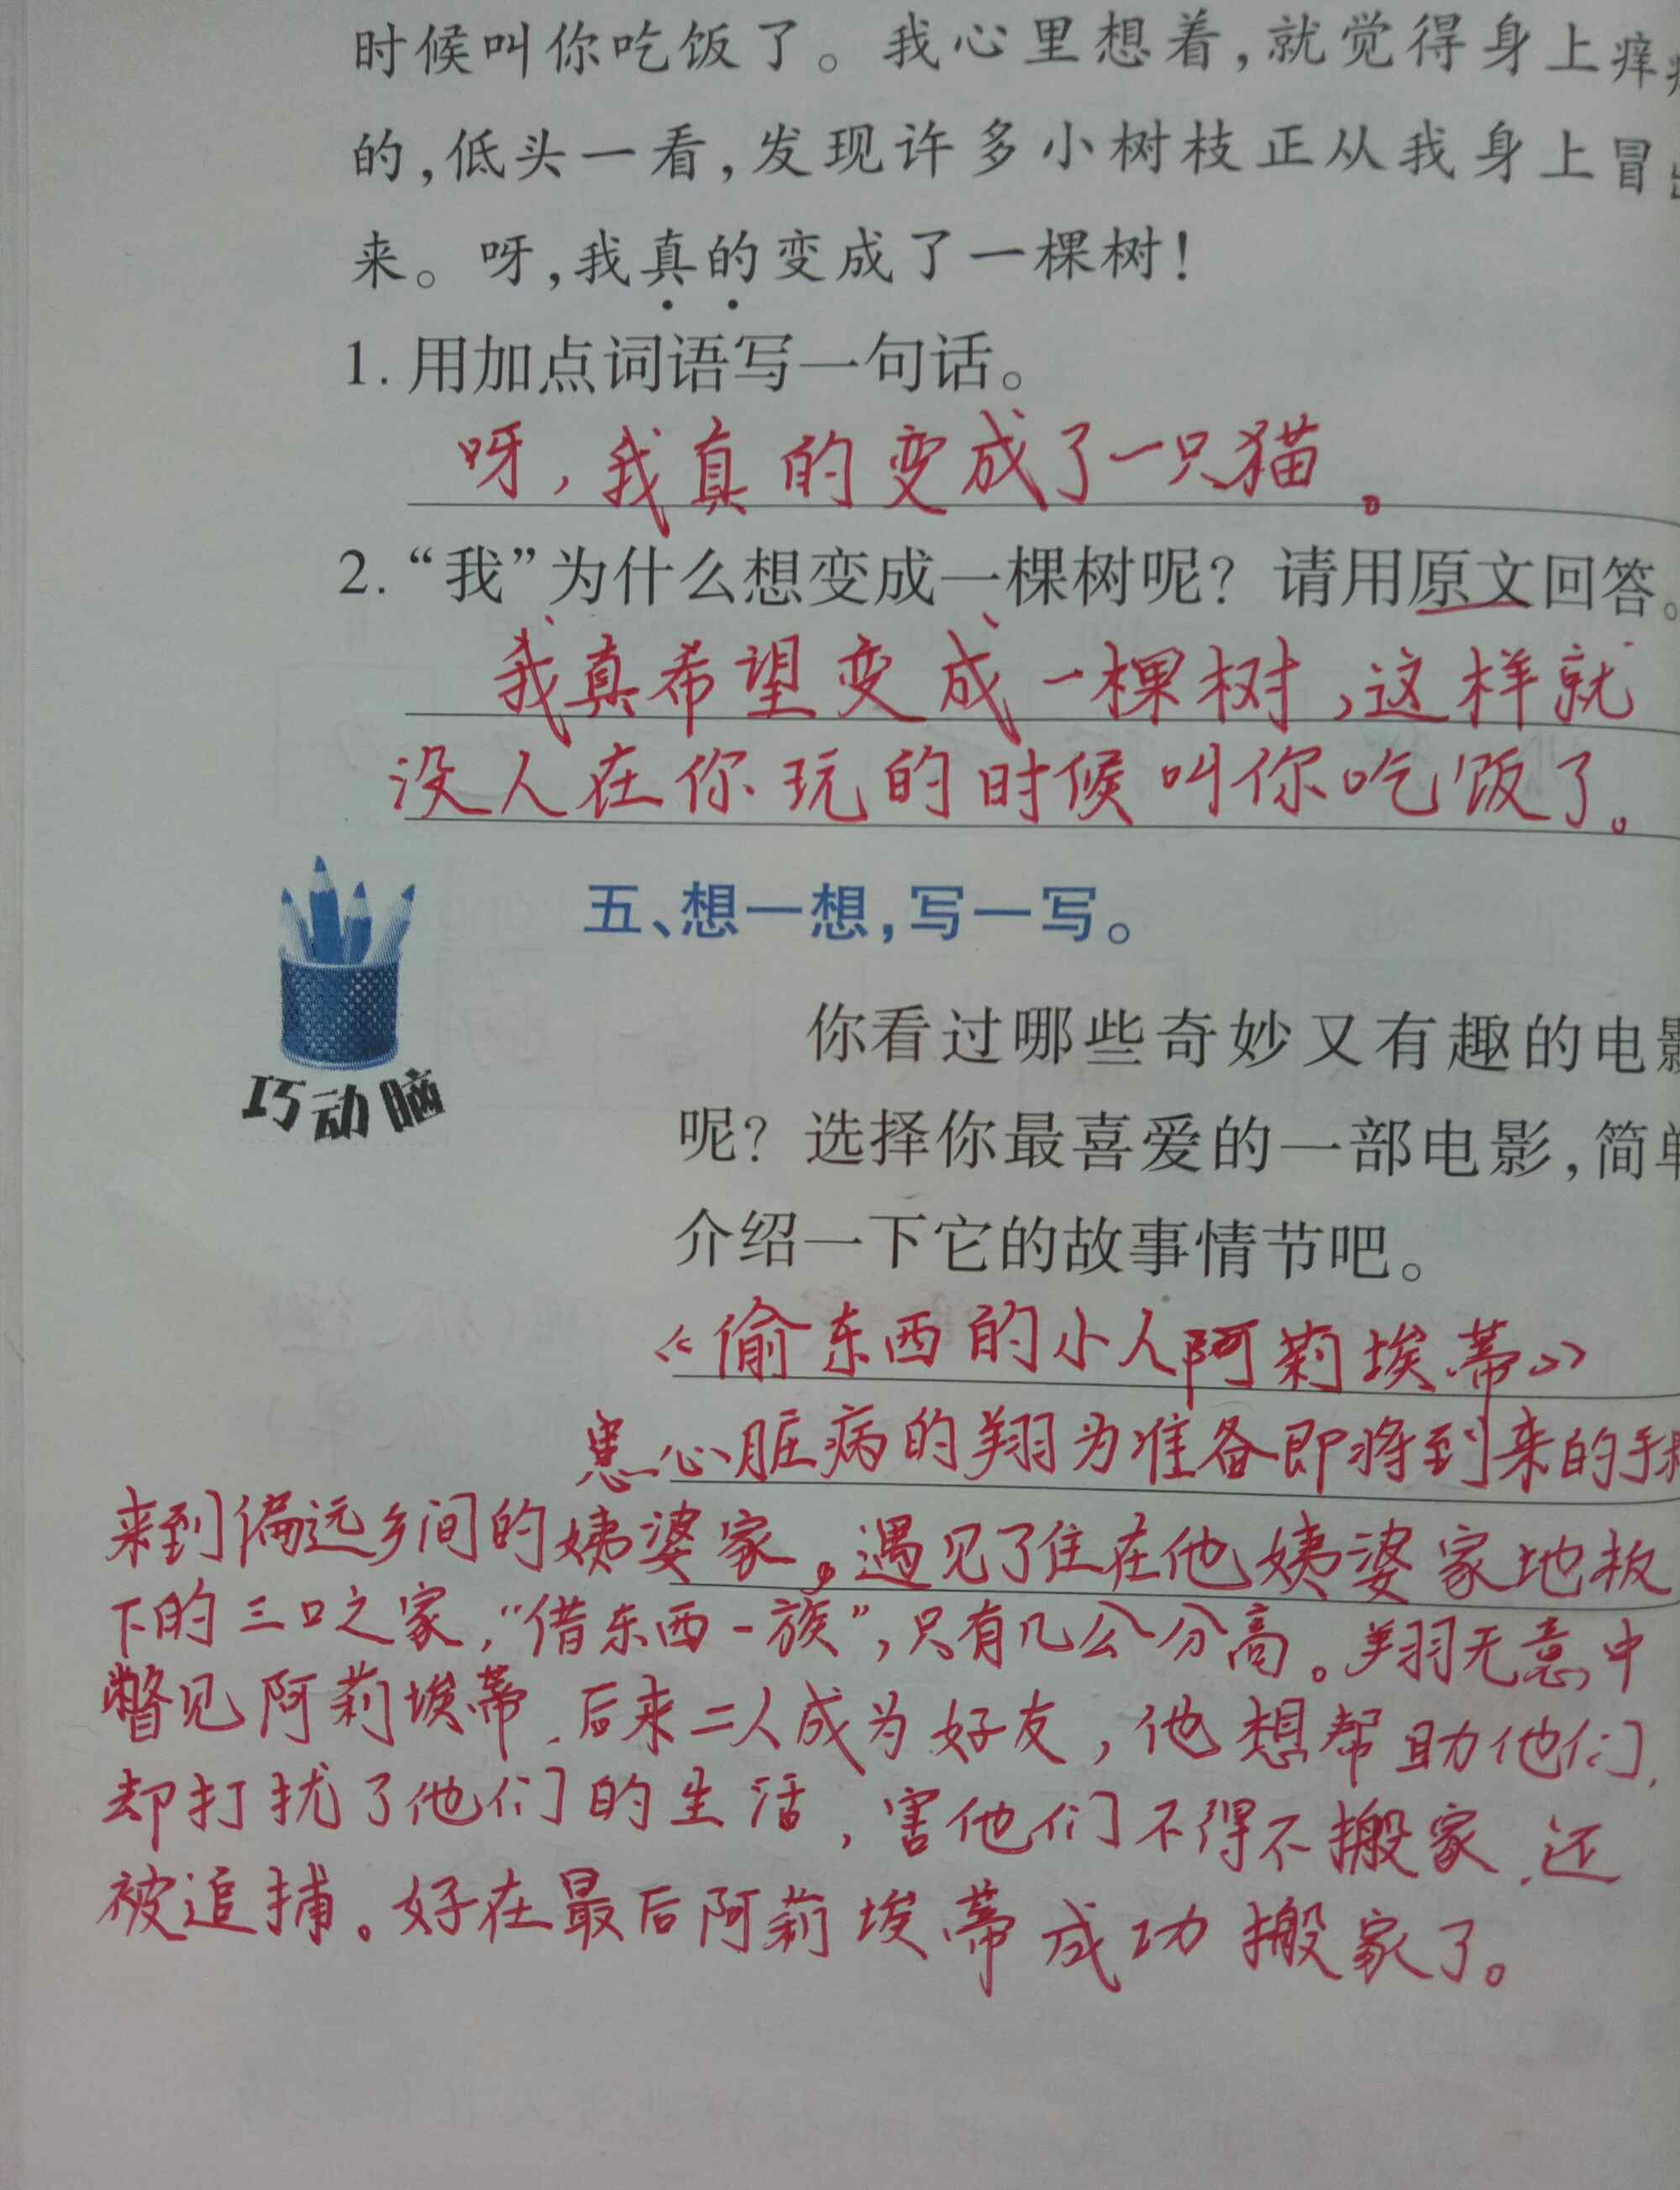 时候叫你吃饭了。我心里想着,就觉得身上痒
的,低头一看,发现许多小树枝正从我身上冒
来。呀,我真的变成了一棵树!
1. 用加点词语写一句话。
呀,我真的变成了一只猫。
2. “我”为什么想变成一棵树呢? 请用原文回答。
我真希望变成一棵树,这样就
没人在你玩的时候叫你吃饭了。
五、想一想,写一写。
巧动脑
你看过哪些奇妙又有趣的电影
呢? 选择你最喜爱的一部电影,简单
介绍一下它的故事情节吧。
《偷东西的小人阿莉埃蒂》
患心脏病的翔为准备即将到来的手
来到偏远乡间的姨婆家。遇见了住在他姨婆家地板
下的三口之家,“借东西一族”,只有几公分高。翔无意中
瞥见阿莉埃蒂,后来二人成为好友,他想帮助他们,
却打扰了他们的生活,害他们不得不搬家,还
被追捕。好在最后阿莉埃蒂成功搬家了。